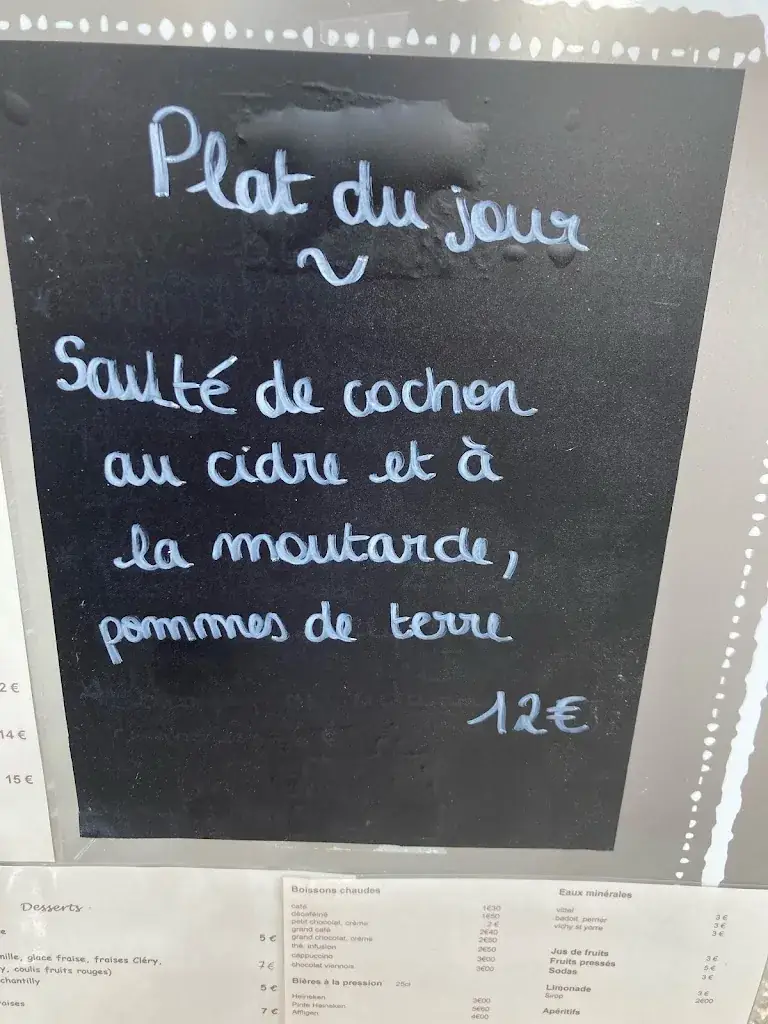 Plat du jour
~
Sauté de cochon
au cidre et à
la moutarde,
pommes de terre
12€
2 €
14 €
15 €
Desserts
5 €
nille, glace fraise, fraises Cléry,
y, coulis fruits rouges)
7 €
chantilly
5 €
raises
7 €
Boissons chaudes
café 1€30
décaféiné 1€60
petit chocolat, crème 2 €
grand café 2€40
grand chocolat, crème 2€60
thé, infusion 2€50
cappuccino 3€00
chocolat viennois 3€00
Bières à la pression 25cl
Heineken 3€00
Pinte Heineken
Affligen 4€00
Eaux minérales
vittel 3 €
badoit, perrier 3 €
vichy st yorre 3 €
Jus de fruits 3 €
Fruits pressés 5 €
Sodas 3 €
Limonade 3 €
Sirop 2€00
Apéritifs